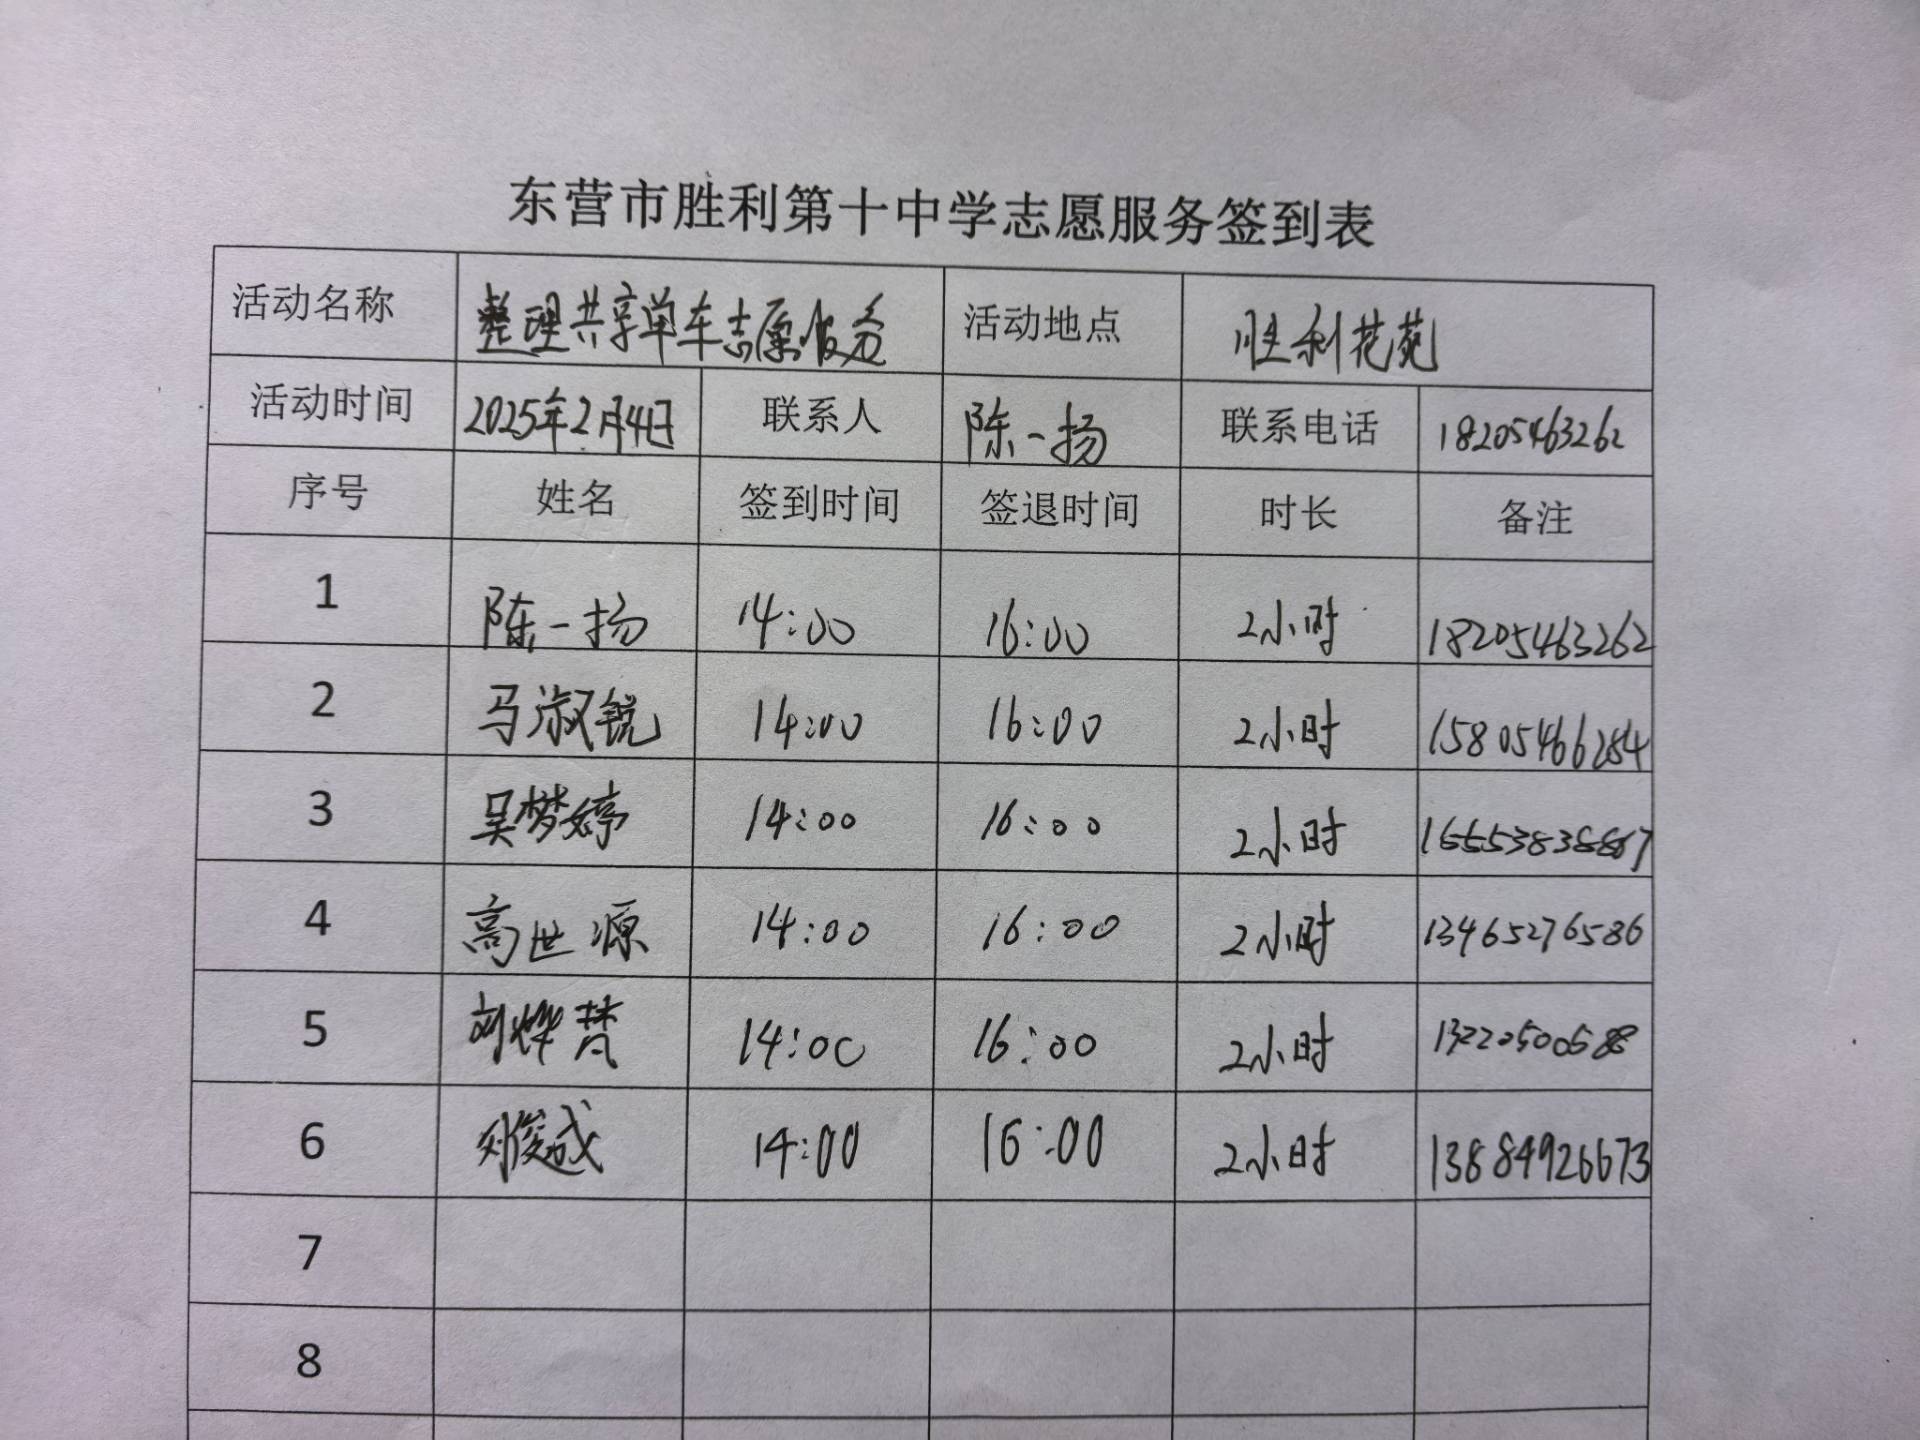 东营市胜利第十中学志愿服务签到表
活动名称 整理共享单车志愿服务 活动地点 胜利花苑
活动时间 2025年2月4日 联系人 陈一扬 联系电话 18205463262
序号 姓名 签到时间 签退时间 时长 备注
1 陈一扬 14:00 16:00 2小时 18205463262
2 马淑锐 14:00 16:00 2小时
3 吴梦婷 14:00 16:00 2小时
4 高世源 14:00 16:00 2小时 13465276586
5 14:00 16:00 2小时
6 刘俊成 14:00 16:00 2小时 13884926673
7
8